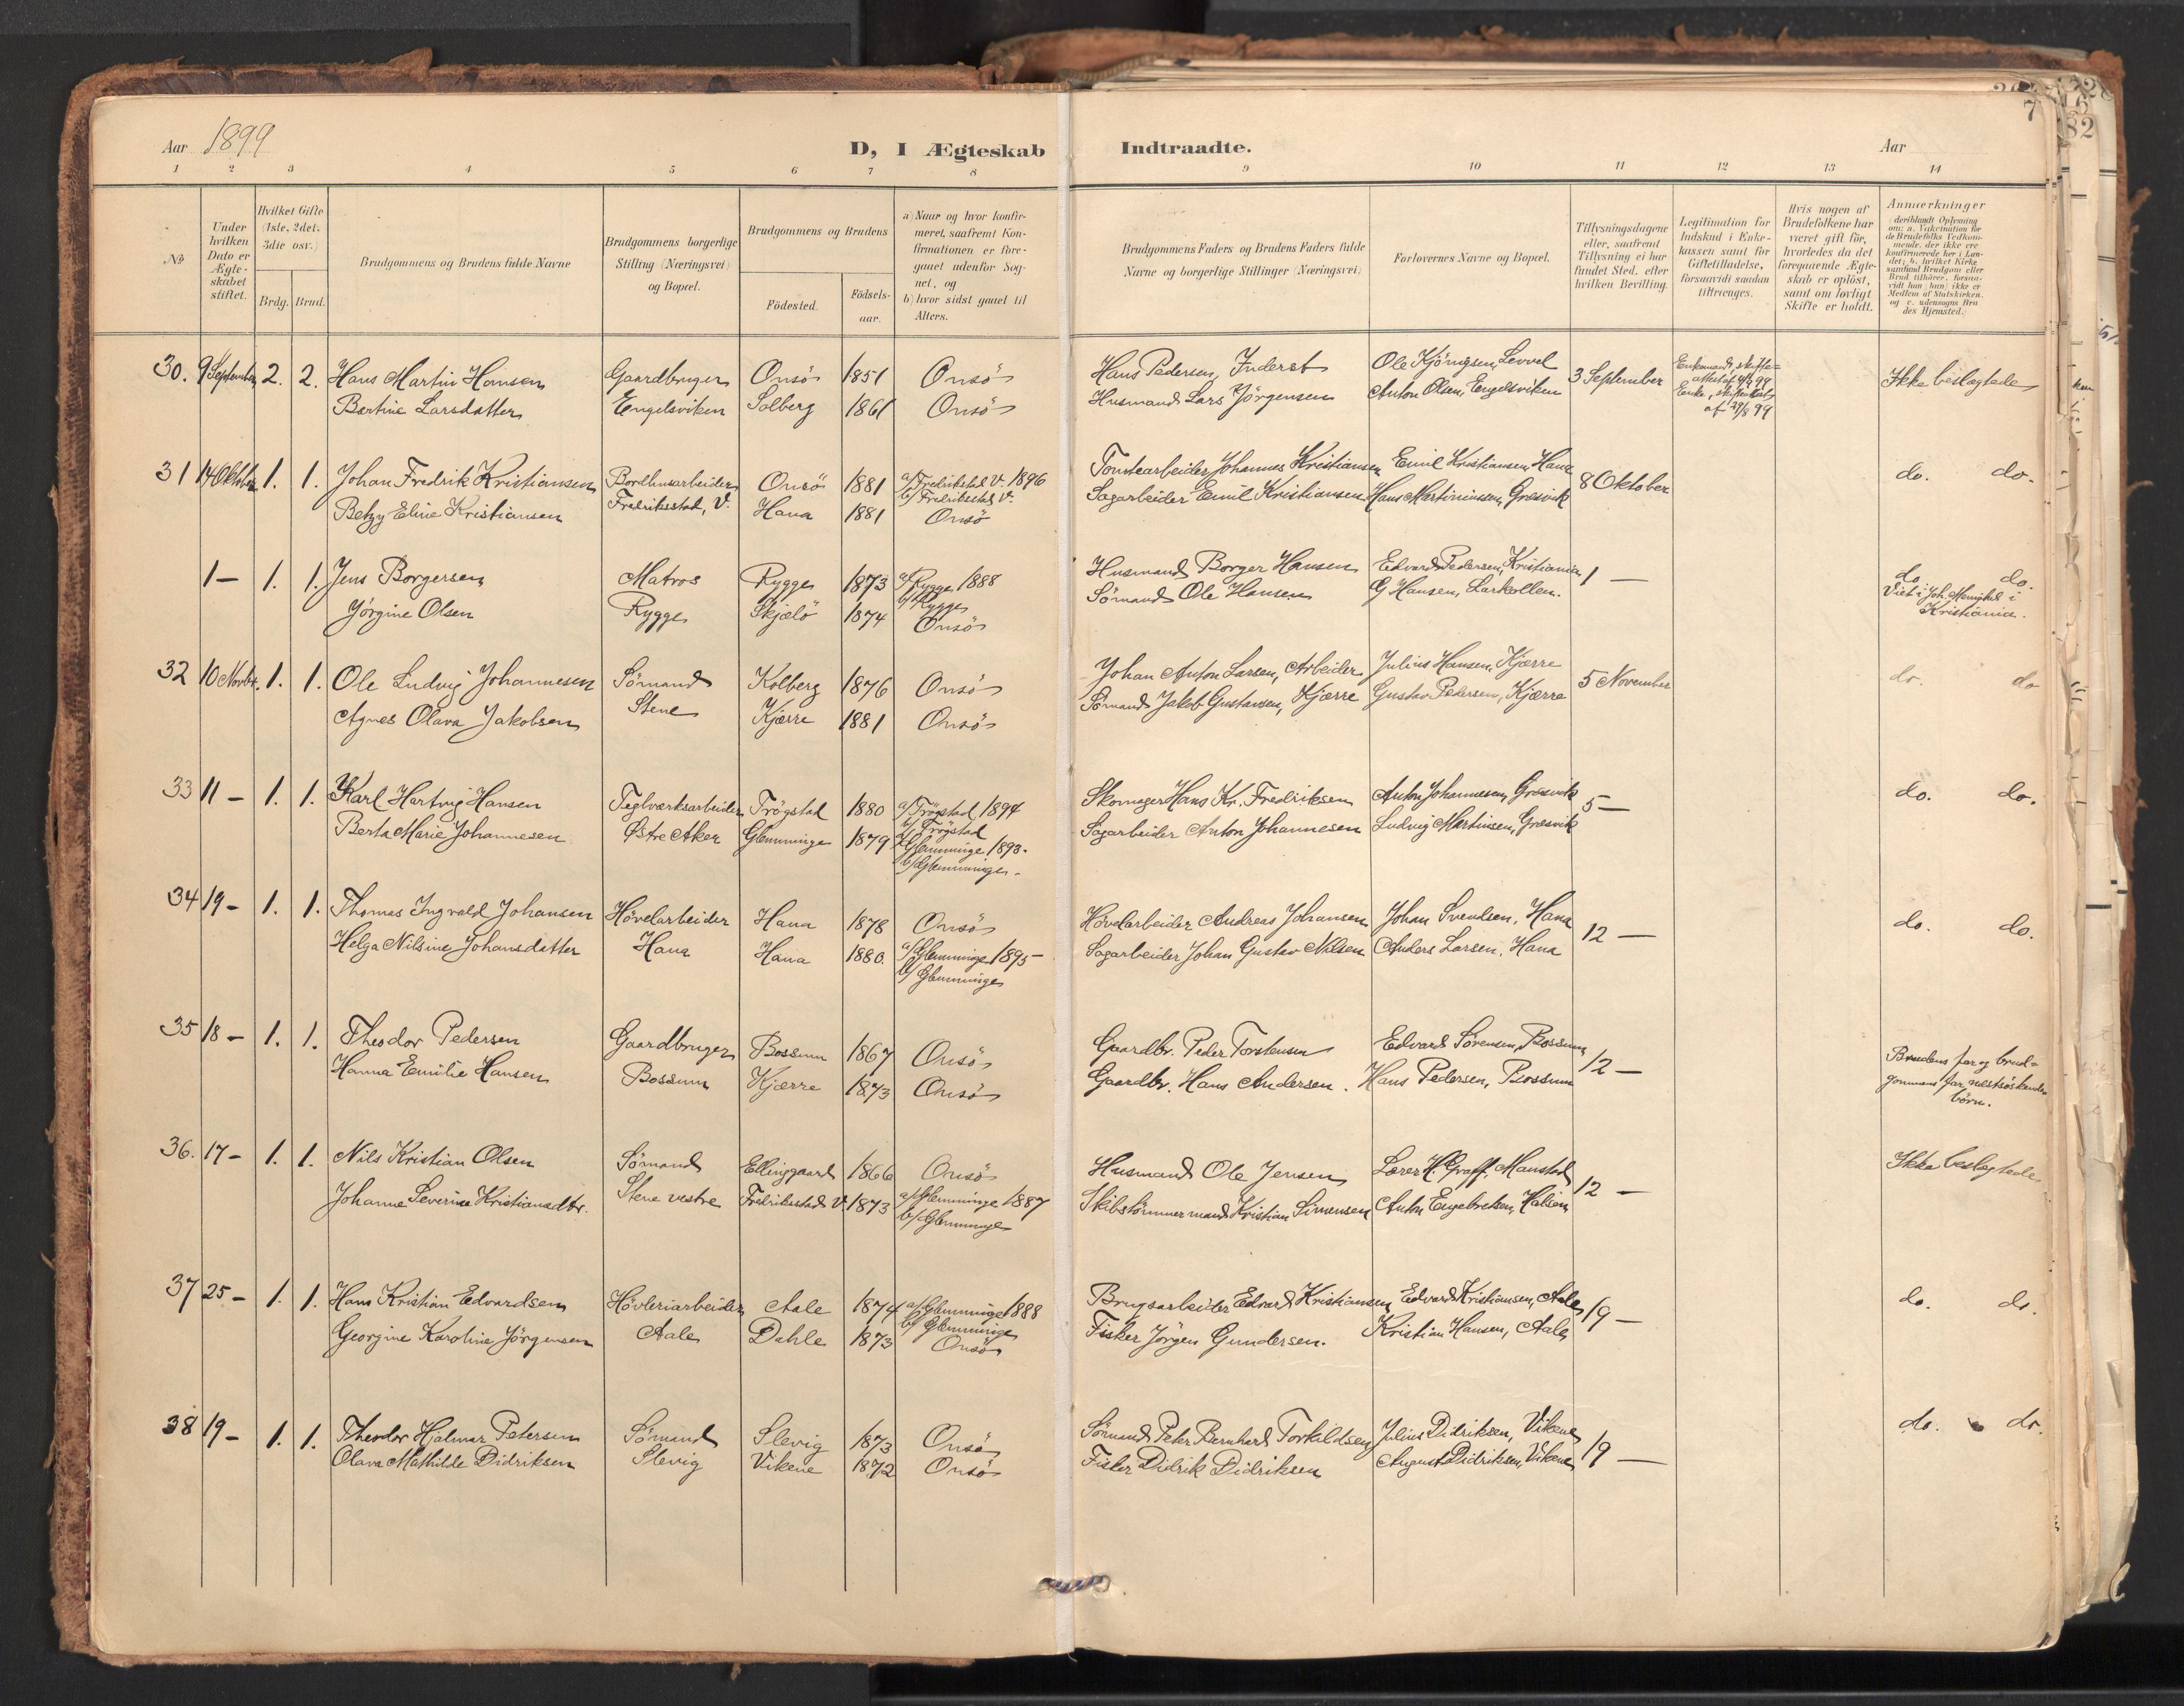 Aar 1899 D, I Ægteskab Indtraadte. Aar 7
1 2 3 4 5 6 7 8 9 10 11 12 13 14
No
Under hvilken Dato er Ægteskabet stiftet.
Hvilket Gifte (1ste, 2det, 3die osv.)
Brdg. Brud.
Brudgommens og Brudens fulde Navne
Brudgommens borgerlige Stilling (Næringsvei) og Bopæl.
Brudgommens og Brudens
Födested. Födselsaar.
a) Naar og hvor konfirmeret, saafremt Konfirmationen er foregaaet udenfor Sognet, og
b) hvor sidst gaaet til Alters.
Brudgommens Faders og Brudens Faders fulde Navne og borgerlige Stillinger (Næringsvei)
Forlovernes Navne og Bopæl.
Tillysningsdagene eller, saafremt Tillysning ei har fundet Sted, efter hvilken Bevilling.
Legitimation for Indskud i Enkekassen samt for Giftetilladelse, forsaavidt saadan tiltrænges.
Hvis nogen af Brudefolkene har været gift för, hvorledes da det foregaaende Ægteskab er oplöst, samt om lovligt Skifte er holdt.
Anmærkninger (deriblandt Oplysning om: a. Vakcination for de Brudefolks Vedkommende, der ikke ere konfirmerede her i Landet; b. hvilket Kirkesamfund Brudgom eller Brud tilhörer, forsaavidt han (hun) ikke er Medlem af Statskirken, og c. udensogns Brudes Hjemsted.)
30. 9 September 2. 2. Hans Martin Hansen Gaardbruger Onsö 1851 Onsö Hans Pedersen, Inderst Ole Kjönigsen, Levvel 3 September Enkemand, skifteattest af 4/8 99 Ikke beslegtede
Bertine Larsdatter Engelsviken Solberg 1861 Onsö Husmand Lars Jörgensen Anton Olsen, Engelsviken Enke, skifteattest af 29/8 99
31 14 Oktober 1. 1. Johan Fredrik Kristiansen Bordtomtarbeider Onsö 1881 a/ Fredrikstad V. 1896 b/ Fredrikstad V. Tomtearbeider Johannes Kristiansen Emil Kristiansen, Hana 8 Oktober do. do.
Betzy Eline Kristiansen Fredriksstad, V. Hana 1881 Onsö Sagarbeider Emil Kristiansen Hans Martiniussen, Græsvik
1 – 1. 1. Jens Borgersen Matros Rygge 1873 a/ Rygge 1888 b/ Rygge Husmand Borger Hansen Edvard Pedersen, Kristiania 1 – do. do.
Jörgine Olsen Rygge Skjælö 1874 Onsö Sömand Ole Hansen G Hansen, Larkollen. Viet i Joh. Menighed i Kristiania.
32 10 Novbr. 1. 1. Ole Ludvig Johannesen Sömand Kolberg 1876 Onsö Johan Anton Larsen, Arbeider Julius Hansen, Kjærre 5 November do. do
Agnes Olava Jakobsen Stene Kjærre 1881 Onsö Sömand Jakob Gustavsen, Kjærre Gustav Pedersen, Kjærre
33 11 – 1. 1. Karl Hartvig Hansen Teglværksarbeider Trögstad 1880 a/ Trögstad 1894 b/ Trögstad Skomager Hans Kr. Fredriksen Anton Johannesen, Græsvik 5 – do. do.
Berta Marie Johannesen Østre Aker Glemminge 1879 a/ Glemminge 1893. b/ Glemminge. Sagarbeider Anton Johannesen Ludvig Martinsen, Græsvik
34 19 – 1. 1. Thomas Ingvald Johansen Hövelarbeider Hana 1878 Onsö Hövelarbeider Andreas Johansen Johan Svendsen, Hana 12 – do. do.
Helga Nilsine Johansdatter Hana Hana 1880. a/ Glemminge 1895 – b/ Glemminge Sagarbeider Johan Gustav Nilsen Anders Larsen, Hana
35 18 – 1. 1. Theodor Pedersen Gaardbruger Bossum 1867 Onsö Gaardbr. Peder Torstensen Edvard Sörensen, Bossum 12 – Brudens far og brudgommens far nestsöskendebörn.
Hanna Emilie Hansen Bossum Kjærre 1873 Onsö Gaardbr. Hans Andersen. Hans Pedersen, Bossum
36. 17 – 1. 1. Nils Kristian Olsen Sömand Ellinggaard 1866 Onsö Husmand Ole Jensen Lærer H. Graff, Manstad 12 – Ikke beslegtede
Johanne Severine Kristiansdtr. Stene vestre Fredrikstad V. 1873 a/ Glemminge 1887 b/ Glemminge Skibstömmermand Kristian Simensen Anton Engebretsen, Halsen
37 25 – 1. 1. Hans Kristian Edvardsen Hövleriarbeider Aale 1874 a/ Glemminge 1888 b/ Glemminge Brugsarbeider Edvard Kristiansen Edvard Kristiansen, Aale 19 – do. do.
Georgine Karoline Jörgensen Aale Dahle 1873 Onsö Fisker Jörgen Gundersen. Kristian Hansen, Aale
38 19 – 1. 1. Theodor Hjalmar Petersen Sömand Slevig 1873 Onsö Sömand Peter Bernhard Torkildsen Julius Didriksen, Vikene 19 – do. do.
Olava Mathilde Didriksen Slevig Vikene 1872 Onsö Fisker Didrik Didriksen August Didriksen, Vikene